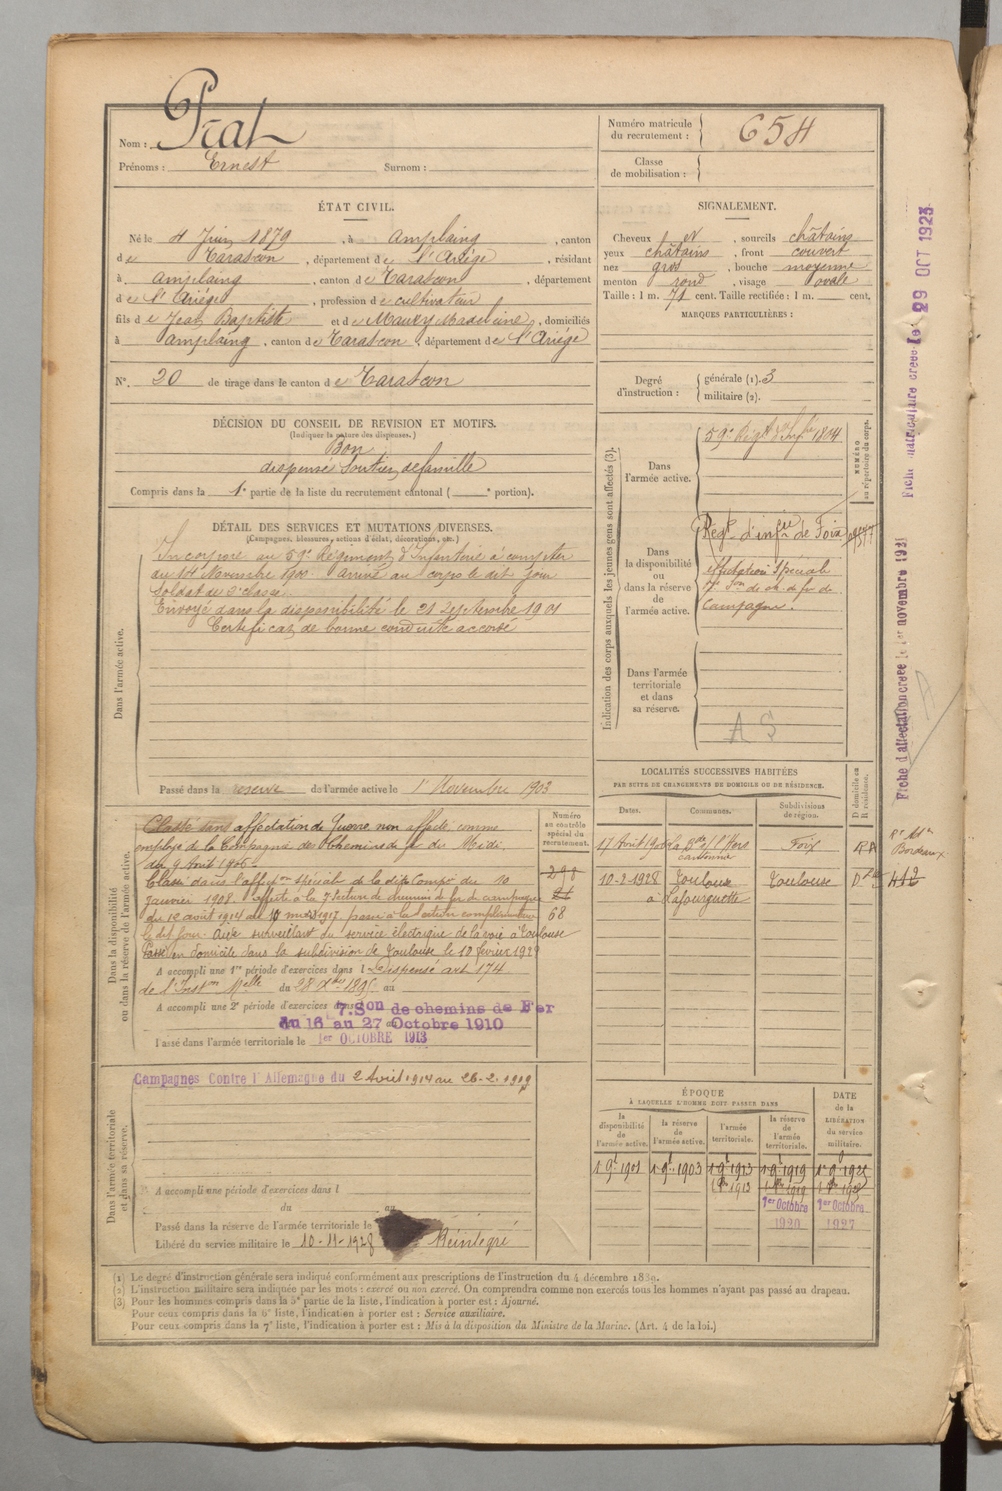 Nom : Prat
Prénoms : Ernest Surnom :
Numéro matricule du recrutement : 654
Classe de mobilisation :
ÉTAT CIVIL.
Né le 4 Juin 1879, à Amplaing, canton
de Tarascon, département de l'Ariége, résidant
à Amplaing, canton de Tarascon, département
de l'Ariége, profession de cultivateur
fils de Jean Baptiste et de Maury Madeleine, domiciliés
à Amplaing, canton de Tarascon, département de l'Ariége
N°. 20 de tirage dans le canton de Tarascon
SIGNALEMENT.
Cheveux et, sourcils châtains
yeux châtains, front couvert
nez gros, bouche moyenne
menton rond, visage ovale
Taille : 1 m. 71 cent. Taille rectifiée : 1 m. cent.
MARQUES PARTICULIÈRES :
Degré d'instruction : générale (1). 3
militaire (2).
DÉCISION DU CONSEIL DE REVISION ET MOTIFS.
(Indiquer la nature des dispenses.)
Bon
dispensé Soutien de famille
Compris dans la 1e partie de la liste du recrutement cantonal ( e portion).
DÉTAIL DES SERVICES ET MUTATIONS DIVERSES.
(Campagnes, blessures, actions d'éclat, décorations, etc.)
Dans l'armée active.
Incorporé au 59e Régiment d'Infanterie à compter
du 14 Novembre 1900 arrivé au corps le dit jour
Soldat de 2e classe
Envoyé dans la disponibilité le 21 Septembre 1901
Certificat de bonne conduite accordé
Passé dans la réserve de l'armée active le 1er Novembre 1903
Indication des corps auxquels les jeunes gens sont affectés (3).
Dans l'armée active.
59e Régt d'Infie 1804
NUMÉRO au répertoire du corps.
Dans la disponibilité ou dans la réserve de l'armée active.
Régt d'infie de Foix
affectation Spéciale
7e Son de ch. de fer de
Campagne.
Dans l'armée territoriale et dans sa réserve.
A S
LOCALITÉS SUCCESSIVES HABITÉES
PAR SUITE DE CHANGEMENTS DE DOMICILE OU DE RÉSIDENCE.
Dates. Communes. Subdivisions de région. D domicile ou R résidence.
cantonnier
Foix
10-2-1928 Toulouse Toulouse
à Lafourguette
Bordeaux
412
Dans la disponibilité ou dans la réserve de l'armée active.
Numéro au contrôle spécial du recrutement.
298
21
68
Classé sans affectation de Guerre non affecté comme
employé de la Compagnie des Chemins de fer du Midi.
du 9 Avril 1906
Classé dans l'affecton spéciale de la dite Compie du 10
janvier 1908. affecté à la 7e section de chemins de fer de campagne
du 12 août 1914 au 10 mars 1917. passé à la section complémentaire
le dit jour. Aide surveillant du service électrique de la voie à Toulouse
Passé en domicile dans la subdivision de Toulouse le 10 février 1928
A accompli une 1re période d'exercices dans l Dispensé art. 174
de l'Inston Melle du 28 Xbre 1895 au
A accompli une 2e période d'exercices dans 7.Son de chemins de Fer
du 16 au 27 Octobre 1910
Passé dans l'armée territoriale le 1er OCTOBRE 1913
Dans l'armée territoriale et dans sa réserve.
Campagnes Contre l'Allemagne du 2 Août 1914 au 26-2-1919
A accompli une période d'exercices dans l
du au
Passé dans la réserve de l'armée territoriale le
Libéré du service militaire le 10-11-1928 Réintégré
ÉPOQUE
À LAQUELLE L'HOMME DOIT PASSER DANS
DATE de la LIBÉRATION du service militaire.
la disponibilité de l'armée active. la réserve de l'armée active. l'armée territoriale. la réserve de l'armée territoriale.
1 9e 1901 1 9e 1903 1 9e 1913 1 9e 1919
1er Octobre 1920 1er Octobre 1927
Fiche matriculaire créée le : 29 OCT 1923
Fiche d'affectation créée le 1er novembre 1931
(1) Le degré d'instruction générale sera indiqué conformément aux prescriptions de l'instruction du 4 décembre 1889.
(2) L'instruction militaire sera indiquée par les mots : exercé ou non exercé. On comprendra comme non exercés tous les hommes n'ayant pas passé au drapeau.
(3) Pour les hommes compris dans la 5e partie de la liste, l'indication à porter est : Ajourné.
Pour ceux compris dans la 6e liste, l'indication à porter est : Service auxiliaire.
Pour ceux compris dans la 7e liste, l'indication à porter est : Mis à la disposition du Ministre de la Marine. (Art. 4 de la loi.)